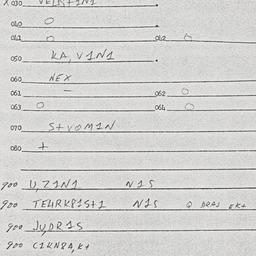 040 O
041 O 042 O
050 KA,V1N1 .
060 NEX
061 – 062 O
063 O 064 O
070 S+VOM1N
080 +
900 U,Z1N1 N1S
900 TEURK81S+1 N1S
900 JU,DR1S
900 C1KN8A,K+